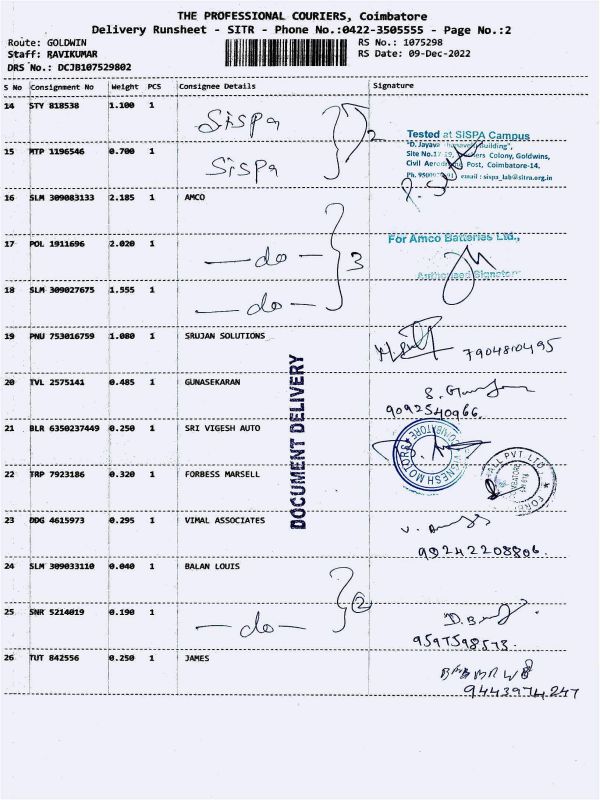 THE PROFESSIONAL COURIERS, Coimbatore
Delivery Runsheet - SITR - Phone No.:0422-3505555 - Page No.:2
Route: GOLDWIN
RS No.: 1075298
Staff: RAVIKUMAR
RS Date: 09-Dec-2022
DRS No.: DCJB107529802
S No Consignment No Weight PCS Consignee Details Signature
14 STY 818538 1.100 1 Sispa 2
Tested at SISPA Campus
15 MTP 1196546 0.700 1 Sispa
Colony, Goldwins,
Post, Coimbatore-14,
email : sispa_lab@sitra.org.in
16 SLM 309083133 2.185 1 AMCO
17 POL 1911696 2.020 1 —do— 3
For Amco Batteries Ltd.,
Authorised Signatory
18 SLM 309027675 1.555 1 —do—
19 PNU 753016759 1.080 1 SRUJAN SOLUTIONS
7904810495
20 TVL 2575141 0.485 1 GUNASEKARAN
9092540966.
DOCUMENT DELIVERY
21 BLR 6350237449 0.250 1 SRI VIGESH AUTO
VIGNESH MOTORS
COIMBATORE
22 TRP 7923186 0.320 1 FORBESS MARSELL
PVT LTD
23 DDG 4615973 0.295 1 VIMAL ASSOCIATES
24 SLM 309033110 0.040 1 BALAN LOUIS
2
25 SNR 5214019 0.190 1 —do—
26 TUT 842556 0.250 1 JAMES
9443974247